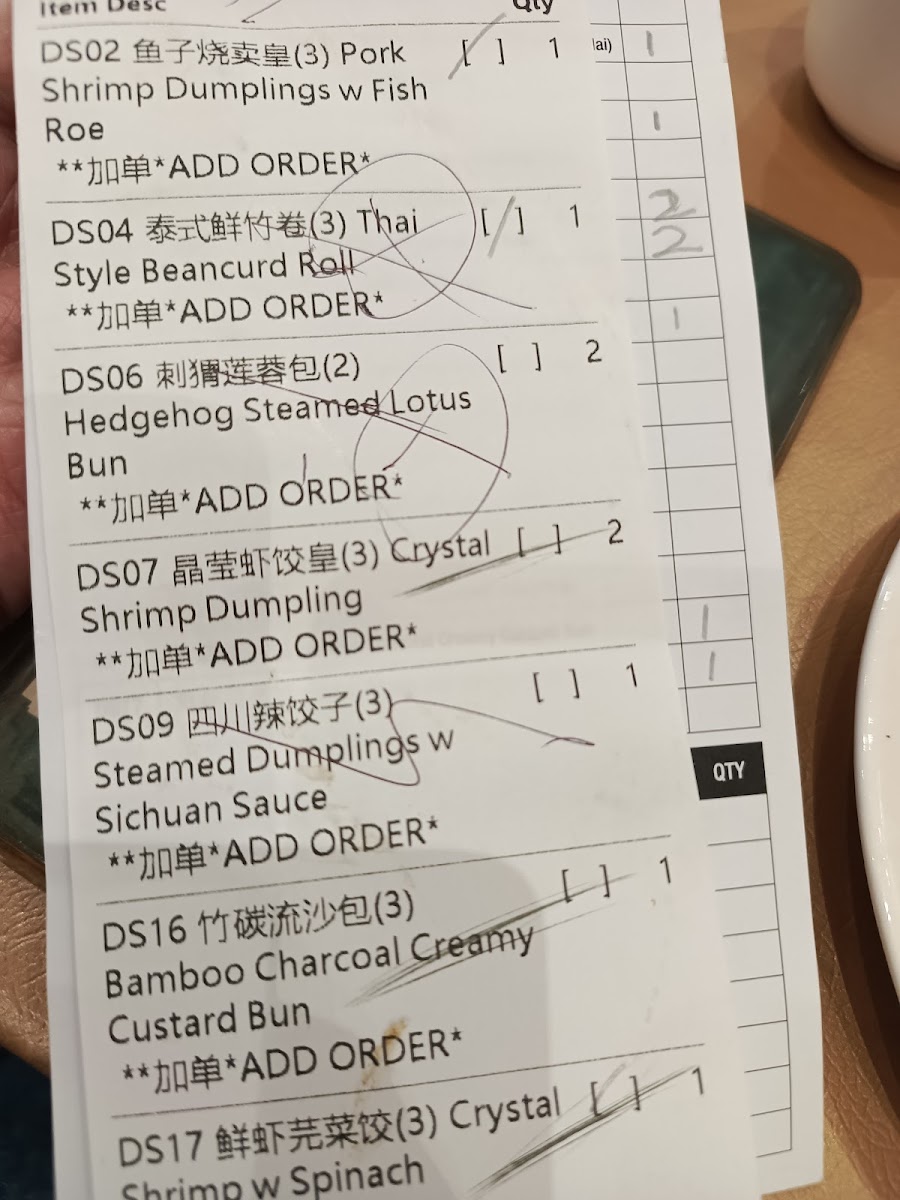 Item Desc Qty
DS02 鱼子烧卖皇(3) Pork [ ] 1
Shrimp Dumplings w Fish
Roe
**加单*ADD ORDER*
DS04 泰式鲜竹卷(3) Thai [ ] 1
Style Beancurd Roll
**加单*ADD ORDER*
DS06 刺猬莲蓉包(2) [ ] 2
Hedgehog Steamed Lotus
Bun
**加单*ADD ORDER*
DS07 晶莹虾饺皇(3) Crystal [ ] 2
Shrimp Dumpling
**加单*ADD ORDER*
DS09 四川辣饺子(3) [ ] 1
Steamed Dumplings w
Sichuan Sauce
**加单*ADD ORDER*
DS16 竹碳流沙包(3) [ ] 1
Bamboo Charcoal Creamy
Custard Bun
**加单*ADD ORDER*
DS17 鲜虾芫菜饺(3) Crystal [ ] 1
Shrimp w Spinach
lai) 1
1
2
2
1
1
1
QTY